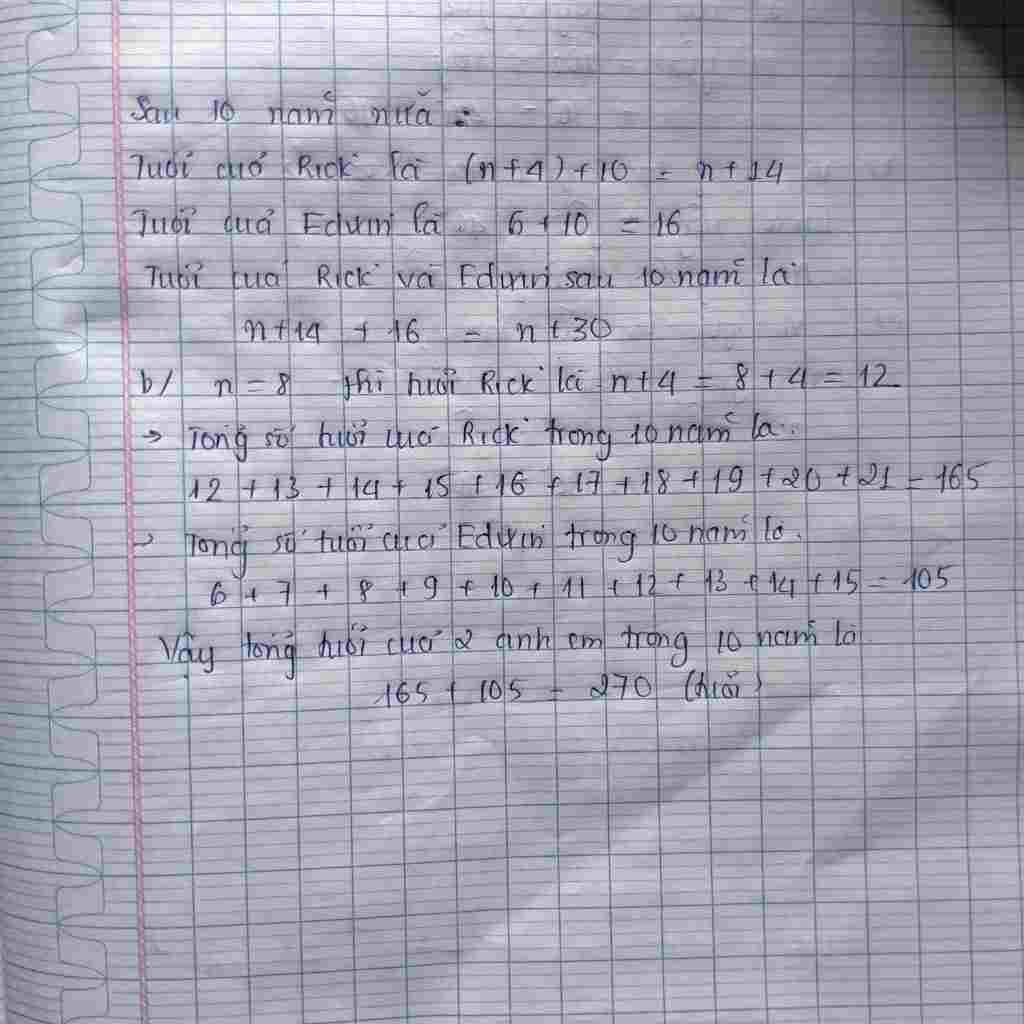 Sau 10 năm nữa :
Tuổi của Rick là (n+4)+10 = n+14
Tuổi của Edwin là 6+10 = 16
Tuổi của Rick và Edwin sau 10 năm là
n+14 + 16 = n+30
b/ n=8 thì tuổi Rick là n+4 = 8+4 = 12
→ Tổng số tuổi của Rick trong 10 năm là.
12 + 13 + 14 + 15 + 16 + 17 + 18 + 19 + 20 + 21 = 165
→ Tổng số tuổi của Edwin trong 10 năm là.
6 + 7 + 8 + 9 + 10 + 11 + 12 + 13 + 14 + 15 = 105
Vậy tổng tuổi của 2 anh em trong 10 năm là
165 + 105 = 270 (tuổi)